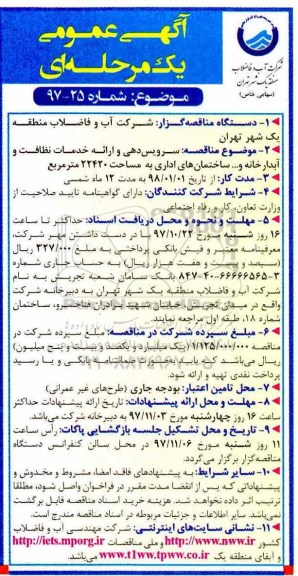 آگهی عمومی
یک مرحله‌ای
شرکت آب و فاضلاب
منطقه یک شهر تهران
(سهامی خاص)
موضوع: شماره ۲۵-۹۷
۱- دستگاه مناقصه‌گزار: شرکت آب و فاضلاب منطقه
یک شهر تهران
۲- موضوع مناقصه: سرویس‌دهی و ارائه خدمات نظافت و
آبدارخانه و... ساختمان‌های اداری به مساحت ۲۲۴۲۰ مترمربع
۳- مدت کار: از تاریخ ۹۸/۰۱/۰۱ به مدت ۱۲ ماه شمسی
۴- شرایط شرکت کنندگان: دارای گواهینامه تایید صلاحیت از
وزارت تعاون، کار و رفاه اجتماعی
۵- مهلت و نحوه و محل دریافت اسناد: حداکثر تا ساعت
۱۶ روز شنبه مورخ ۹۷/۱۰/۲۲ با در دست داشتن مهر شرکت،
معرفینامه معتبر و فیش بانکی پرداختی به مبلغ ۳۲۷/۰۰۰ ریال
(سیصد و بیست و هفت هزار ریال) به حساب جاری شماره
۸۴۷-۴۰-۶۶۶۶۶۵۶۵-۳ بانک سامان شعبه تجریش به نام
شرکت آب و فاضلاب منطقه یک شهر تهران به دبیرخانه شرکت
واقع در میدان تجریش، خیابان شهید
شماره ۱۸، طبقه اول مراجعه نمایند.
۶- مبلغ سپرده شرکت در مناقصه: مبلغ سپرده شرکت در
مناقصه ۱/۱۲۵/۰۰۰/۰۰۰ (یک میلیارد و یکصد و بیست و پنج میلیون)
ریال می‌باشد که باید به صورت ضمانتنامه بانکی و یا رسید
پرداخت نقدی تهیه و ارائه شود.
۷- محل تامین اعتبار: بودجه جاری (طرح‌های غیر عمرانی)
۸- مهلت و محل ارائه پیشنهادات: تاریخ ارائه پیشنهادات حداکثر
ساعت ۱۶ روز چهارشنبه مورخ ۹۷/۱۱/۰۳ به دبیرخانه شرکت می‌باشد.
۹- تاریخ و محل تشکیل جلسه بازگشایی پاکات: رأس ساعت
۱۱ روز شنبه مورخ ۹۷/۱۱/۰۶ در محل سالن کنفرانس دستگاه
مناقصه‌گزار برگزار می‌گردد.
۱۰- سایر شرایط: به پیشنهادهای فاقد امضاء مشروط و مخدوش و
پیشنهاداتی که پس از انقضا مدت مقرر در فراخوان واصل شود، مطلقا
ترتیب اثر داده نخواهد شد. هزینه خرید اسناد مناقصه قابل برگشت
نمی‌باشد. سایر اطلاعات و جزئیات مربوطه در اسناد مناقصه مندرج است.
۱۱- نشانی سایت‌های اینترنتی: شرکت مهندسی آب و فاضلاب
کشور http://www.nww.ir و ملی مناقصات http://iets.mporg.ir
و آبفای منطقه یک www.t1ww.tpww.co.ir می‌باشد.